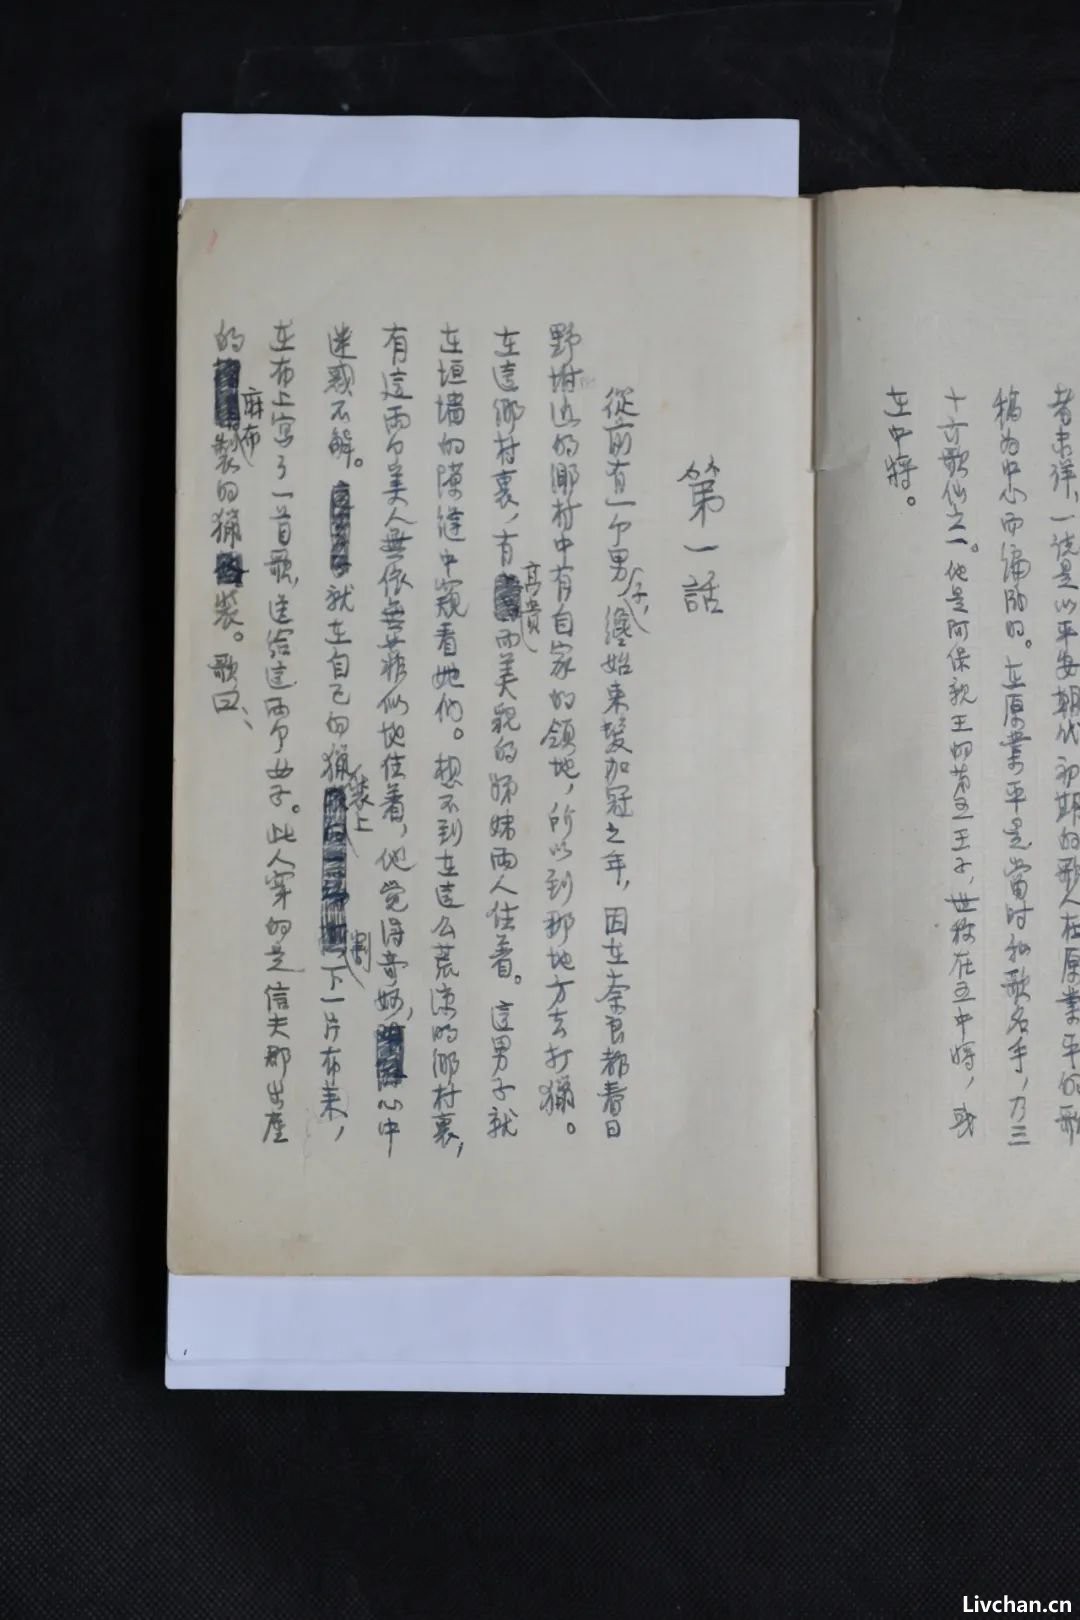 者未详，一说是以平安朝代初期的歌人在原業平的歌
稿为中心而编成的。在原業平是當时和歌名手，乃三
十六歌仙之一。他是阿保親王的第五王子，世称在五中将，或
在中将。
第一話
從前有一个男子，纔始束髮加冠之年，因在奈良都春日
野附近的鄉村中有自家的領地，所以到那地方去打獵。
在這鄉村裏，有高貴而美貌的姊妹兩人住着。這男子就
在垣墙的隙缝中窺看她们。想不到在這么荒凉的鄉村裏，
有這兩个美人無依無靠似地住着，他觉得奇妙，心中
迷惑不解。就在自己的獵装上割下一片布来，
在布上寫了一首歌，送给這兩个女子。此人穿的是信夫郡出産
的麻布製的獵装。歌曰、
Livchan.cn